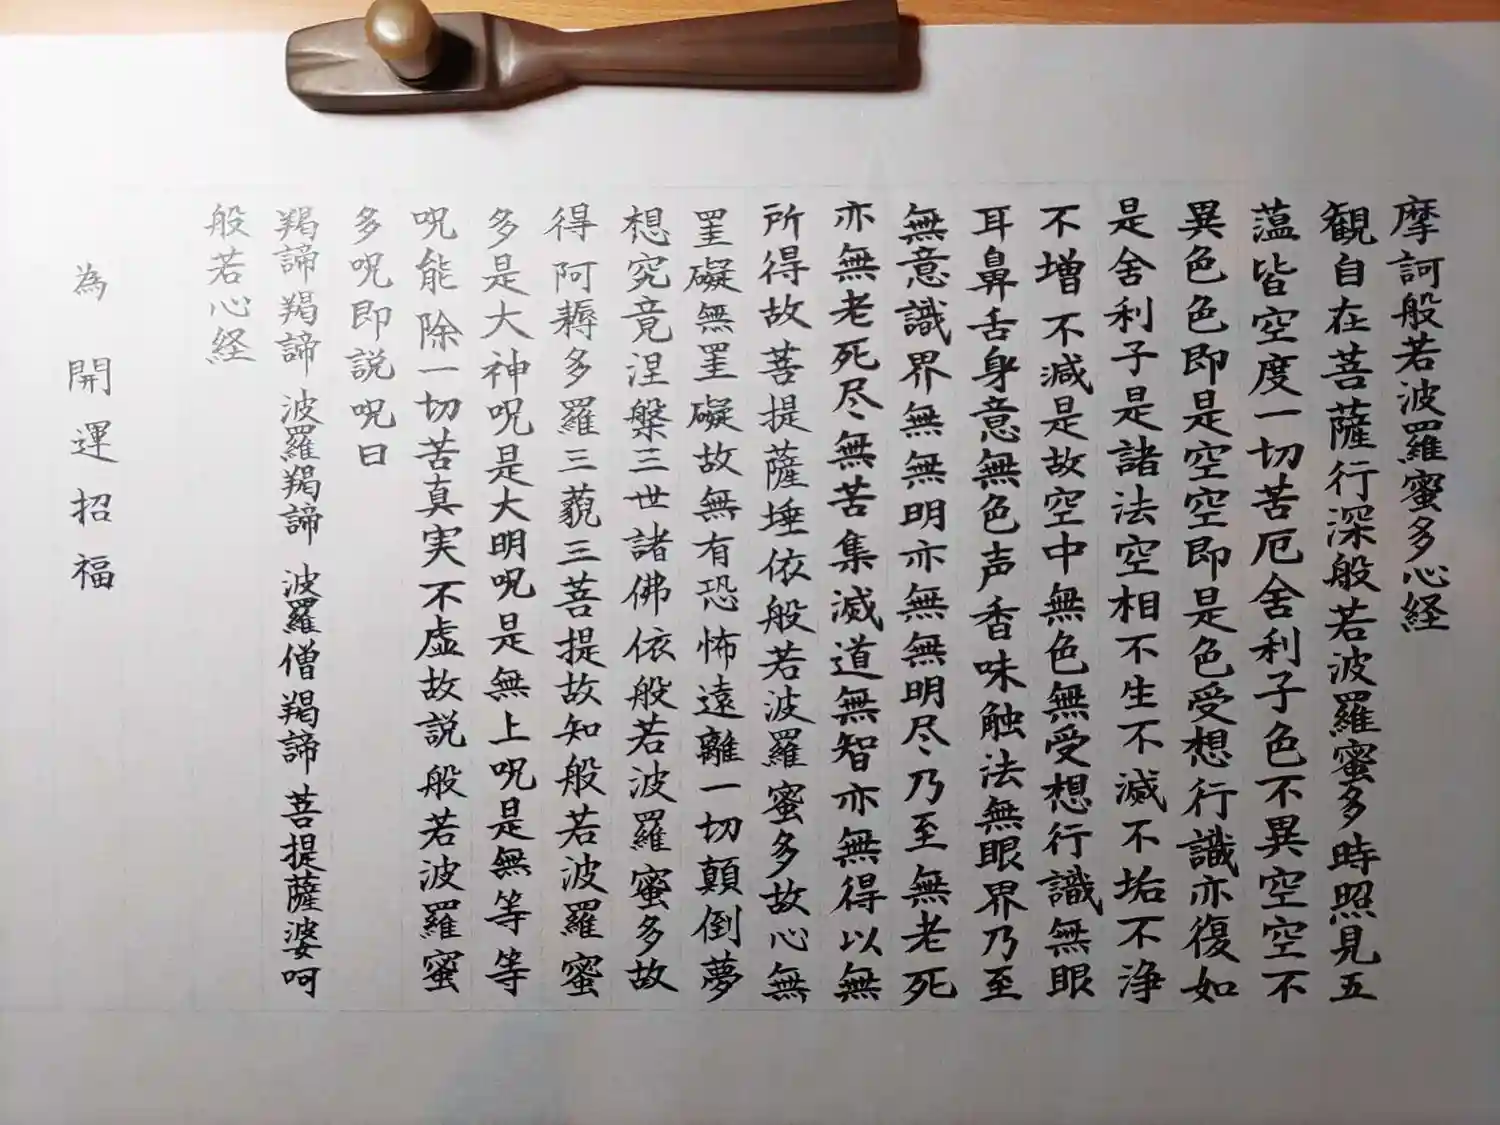 摩訶般若波羅蜜多心経
観自在菩薩行深般若波羅蜜多時照見五
蕰皆空度一切苦厄舍利子色不異空空不
異色色即是空空即是色受想行識亦復如
是舍利子是諸法空相不生不滅不垢不浄
不増不減是故空中無色無受想行識無眼
耳鼻舌身意無色声香味触法無眼界乃至
無意識界無無明亦無無明尽乃至無老死
亦無老死尽無苦集滅道無智亦無得以無
所得故菩提薩埵依般若波羅蜜多故心無
罣礙無罣礙故無有恐怖遠離一切顛倒夢
想究竟涅槃三世諸佛依般若波羅蜜多故
得阿耨多羅三藐三菩提故知般若波羅蜜
多是大神呪是大明呪是無上呪是無等等
呪能除一切苦真実不虚故説般若波羅蜜
多呪即説呪曰
羯諦羯諦 波羅羯諦 波羅僧羯諦 菩提薩婆呵
般若心経
為 開運招福